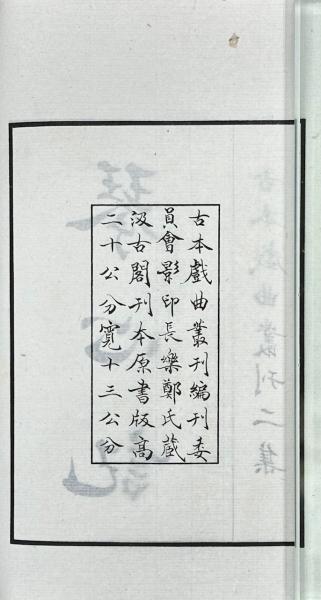 古本戲曲叢刊編刊委
員會影印長樂鄭氏藏
汲古閣刊本原書版高
二十公分寬十三公分